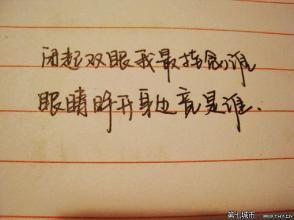 闭起双眼我最挂念谁
眼睛睁开身边竟是谁.
第七城市